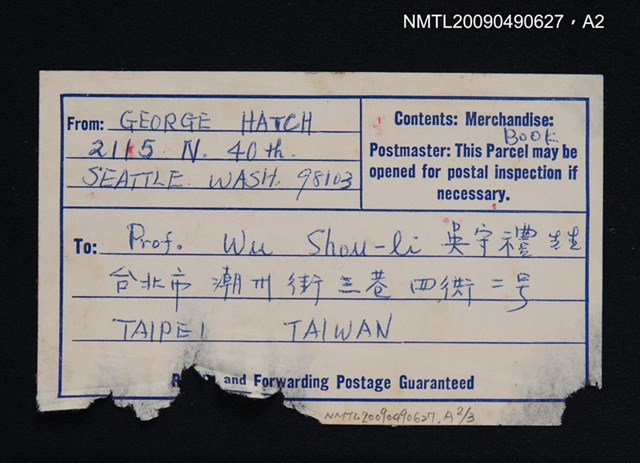 NMTL20090490627，A2
From: GEORGE HATCH
2115 N. 40th.
SEATTLE WASH. 98103
Contents: Merchandise:
BOOK
Postmaster: This Parcel may be
opened for postal inspection if
necessary.
To: Prof. Wu Shou-li 吳守禮 先生
台北市 潮州街 三巷 四衖 二号
TAIPEI TAIWAN
and Forwarding Postage Guaranteed
NMTL20090490627, A2/3